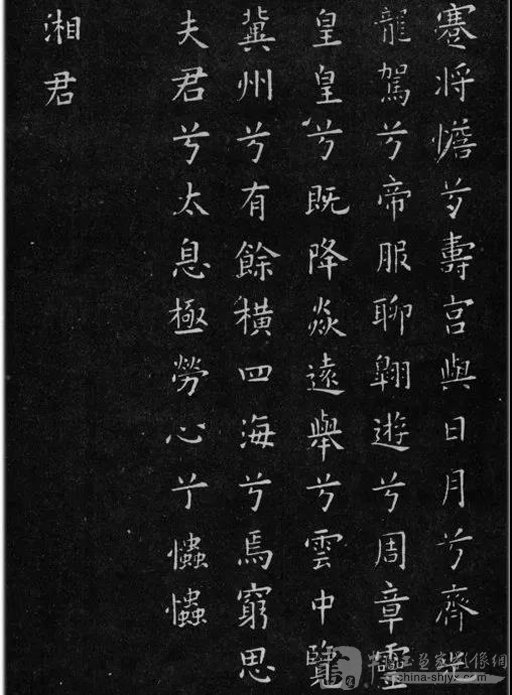 蹇將憺兮壽宮與日月兮齊光
龍駕兮帝服聊翺遊兮周章靈
皇皇兮既降焱遠舉兮雲中覽
冀州兮有餘橫四海兮焉窮思
夫君兮太息極勞心兮𢥞𢥞
湘君
china-shjyx.com